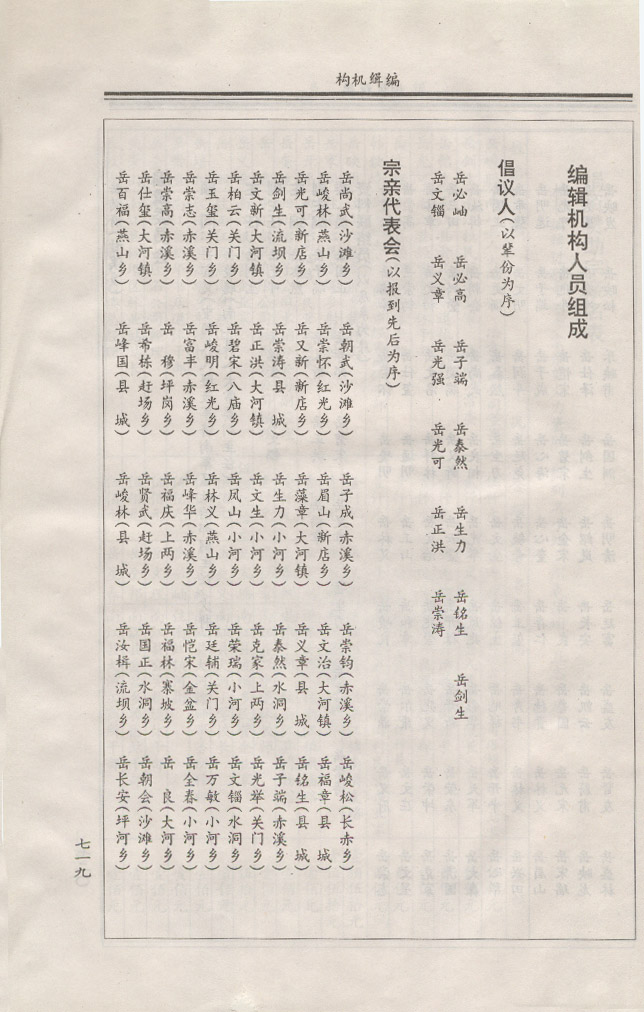 构机缉编
编辑机构人员组成
倡议人(以辈份为序)
岳必岫 岳必高 岳子端 岳泰然 岳生力 岳铭生 岳剑生
岳文锱 岳义章 岳光强 岳光可 岳正洪 岳崇涛
宗亲代表会(以报到先后为序)
岳尚武(沙滩乡) 岳朝武(沙滩乡) 岳子成(赤溪乡) 岳崇钧(赤溪乡) 岳峻松(长赤乡)
岳峻林(燕山乡) 岳崇怀(红光乡) 岳眉山(新店乡) 岳文治(大河镇) 岳福章(县 城)
岳光可(新店乡) 岳又新(新店乡) 岳藻章(大河镇) 岳义章(县 城) 岳铭生(县 城)
岳剑生(流坝乡) 岳崇涛(县 城) 岳生力(小河乡) 岳泰然(水洞乡) 岳子端(赤溪乡)
岳文新(大河镇) 岳正洪(大河镇) 岳文生(小河乡) 岳克家(上两乡) 岳光举(关门乡)
岳柏云(关门乡) 岳碧宋(八庙乡) 岳凤山(小河乡) 岳荣瑞(小河乡) 岳文锱(水洞乡)
岳玉玺(关门乡) 岳峻明(红光乡) 岳林义(燕山乡) 岳廷辅(关门乡) 岳万敏(小河乡)
岳崇志(赤溪乡) 岳富丰(赤溪乡) 岳峰华(赤溪乡) 岳恺宋(金盆乡) 岳全春(小河乡)
岳崇高(赤溪乡) 岳 穆(坪岗乡) 岳福庆(上两乡) 岳福林(寨坡乡) 岳 良(大河乡)
岳仕玺(大河镇) 岳希栋(赶场乡) 岳贤武(赶场乡) 岳国正(水洞乡) 岳朝会(沙滩乡)
岳百福(燕山乡) 岳峰国(县 城) 岳峻林(县 城) 岳汝楫(流坝乡) 岳长安(坪河乡)
七一九